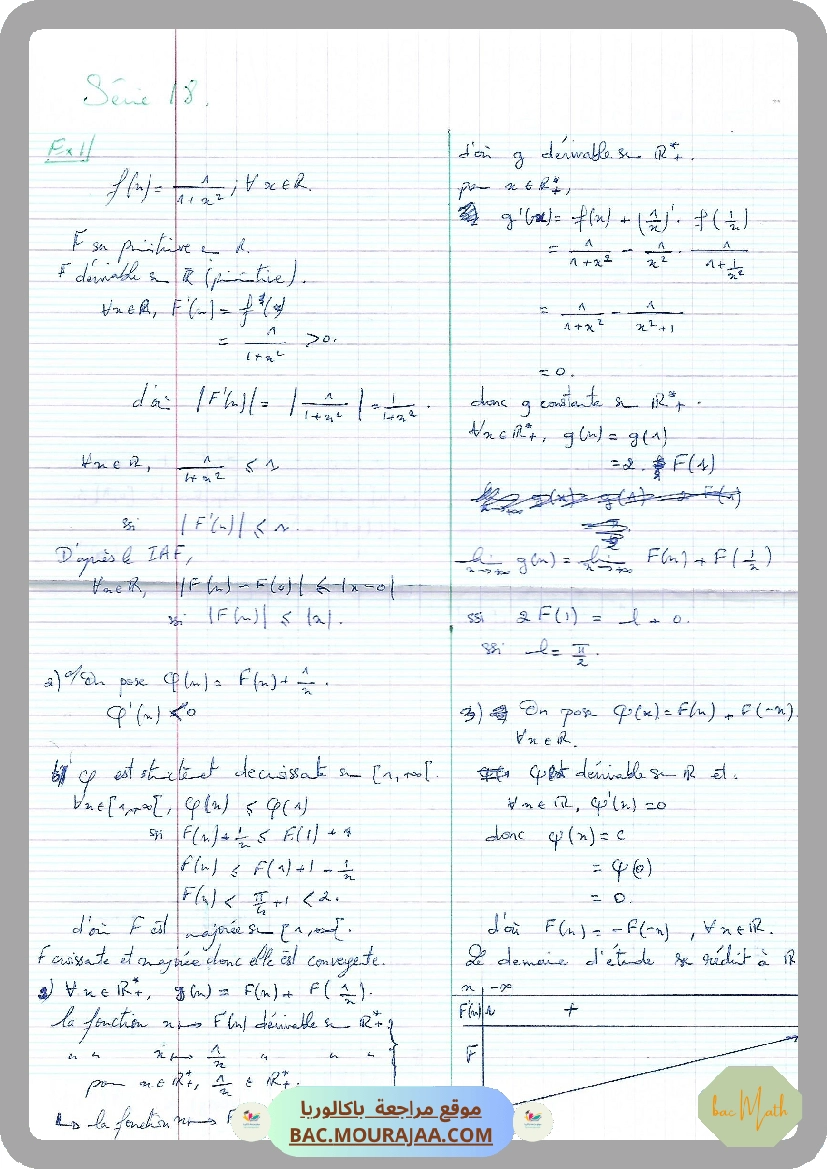 Série 18.
Ex 1/
f(x) = 1/(1+x²) ; ∀ x ∈ ℝ.
F sa primitive ℝ.
F dérivable sur ℝ (primitive).
∀x∈ℝ, F'(x) = f(x)
= 1/(1+x²) > 0.
d'où |F'(x)| = |1/(1+x²)| = 1/(1+x²).
∀x∈ℝ, 1/(1+x²) ≤ 1
ssi |F'(x)| ≤ 1.
D'après le IAF,
∀x∈ℝ, |F(x) - F(0)| ≤ |x-0|
ssi |F(x)| ≤ |x|.
2) a/ On pose φ(x) = F(x) + 1/x.
φ'(x) < 0
φ est strictet decroissate sur [1,+∞[.
∀x∈[1,+∞[, φ(x) ≤ φ(1)
ssi F(x) + 1/x ≤ F(1) + 1
F(x) ≤ F(1) + 1 - 1/x
F(x) < π/4 + 1 < 2.
d'où F est majorée sur [1,+∞[.
F croissate et majorée donc elle est convergente.
∀x∈ℝ*₊, g(x) = F(x) + F(1/x).
la fonction x ↦ F(x) dérivable sur ℝ*₊
" " x ↦ 1/x " " "
pour x∈ℝ*₊, 1/x ∈ ℝ*₊.
↳ la fonction x ↦ F
d'où g dérivable sur ℝ*₊.
pour x ∈ ℝ*₊,
g'(x) = f(x) + (1/x)' . f(1/x)
= 1/(1+x²) - 1/x² . 1/(1+1/x²)
= 1/(1+x²) - 1/(x²+1)
= 0.
donc g constante sur ℝ*₊.
∀x∈ℝ*₊, g(x) = g(1)
= 2. F(1)
lim x→+∞ g(x) = lim x→+∞ F(x) + F(1/x)
ssi 2F(1) = l + 0.
ssi l = π/2.
3) On pose φ(x) = F(x) + F(-x)
∀x∈ℝ.
φ est dérivable sur ℝ et.
∀x∈ℝ, φ'(x) = 0
donc φ(x) = c
= φ(0)
= 0.
d'où F(x) = -F(-x), ∀x∈ℝ.
Le domaine d'étude se réduit à ℝ
x -∞
F'(x) +
F
موقع مراجعة باكالوريا
BAC.MOURAJAA.COM
bac Math